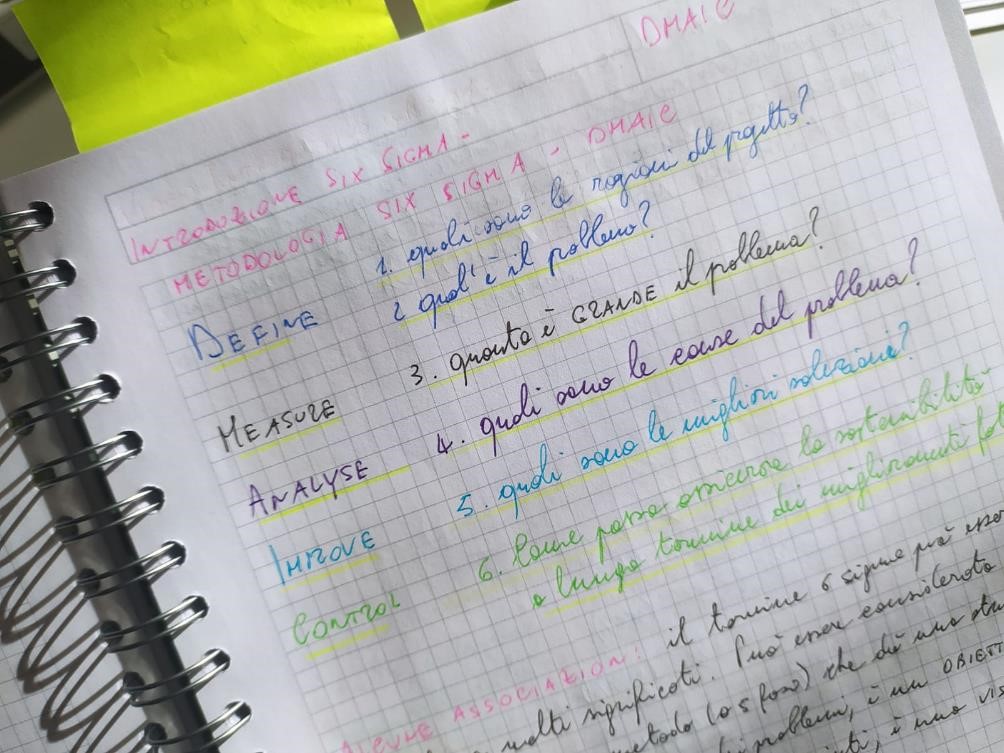 DMAIC
INTRODUZIONE SIX SIGMA -
METODOLOGIA SIX SIGMA - DMAIC
DEFINE 1. quali sono le ragioni del progetto?
2 qual'è il problema?
MEASURE 3. quanto è GRANDE il problema?
ANALYSE 4. quali sono le cause del problema?
IMPROVE 5. quali sono le migliori soluzioni?
CONTROL 6. Come posso assicurare la sostenibilità
a lungo termine dei miglioramenti
ALCUNE ASSOCIAZIONI: il termine 6 sigma può
molti significati. Può esser considerato
metodo (a 5 fasi) che dà una
problemi, è un
è una